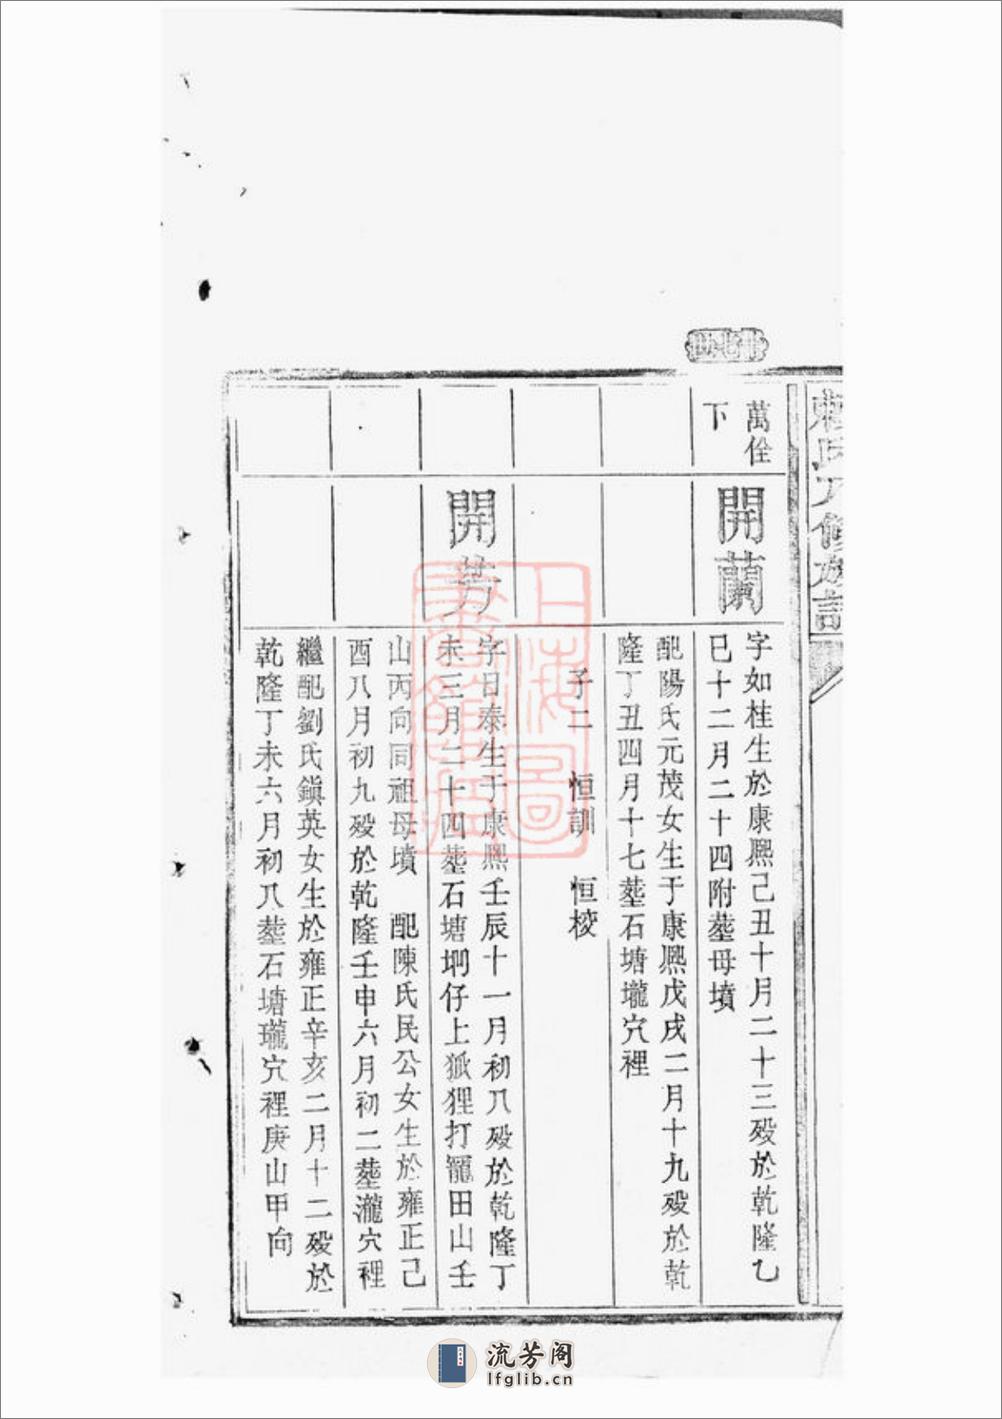 廿七世
萬佺
下
開蘭
字如桂生於康熙己丑十月二十三殁於乾隆乙
巳十二月二十四附塟母墳
配陽氏元茂女生于康熙戊戌二月十九殁於乾
隆丁丑四月十七塟石塘壠穴裡
子二 恒訓 恒梭
開芳
字日泰生于康熙壬辰十一月初八殁於乾隆丁
未三月二十四塟石塘坰仔上狐狸打寵田山壬
山丙向同祖母墳 配陳氏民公女生於雍正己
酉八月初九殁於乾隆壬申六月初二塟瀧穴裡
繼配劉氏鎮英女生於雍正辛亥二月十二殁於
乾隆丁未六月初八塟石塘瓏穴裡庚山甲向
上海圖
書館藏
流芳阁
lfglib.cn